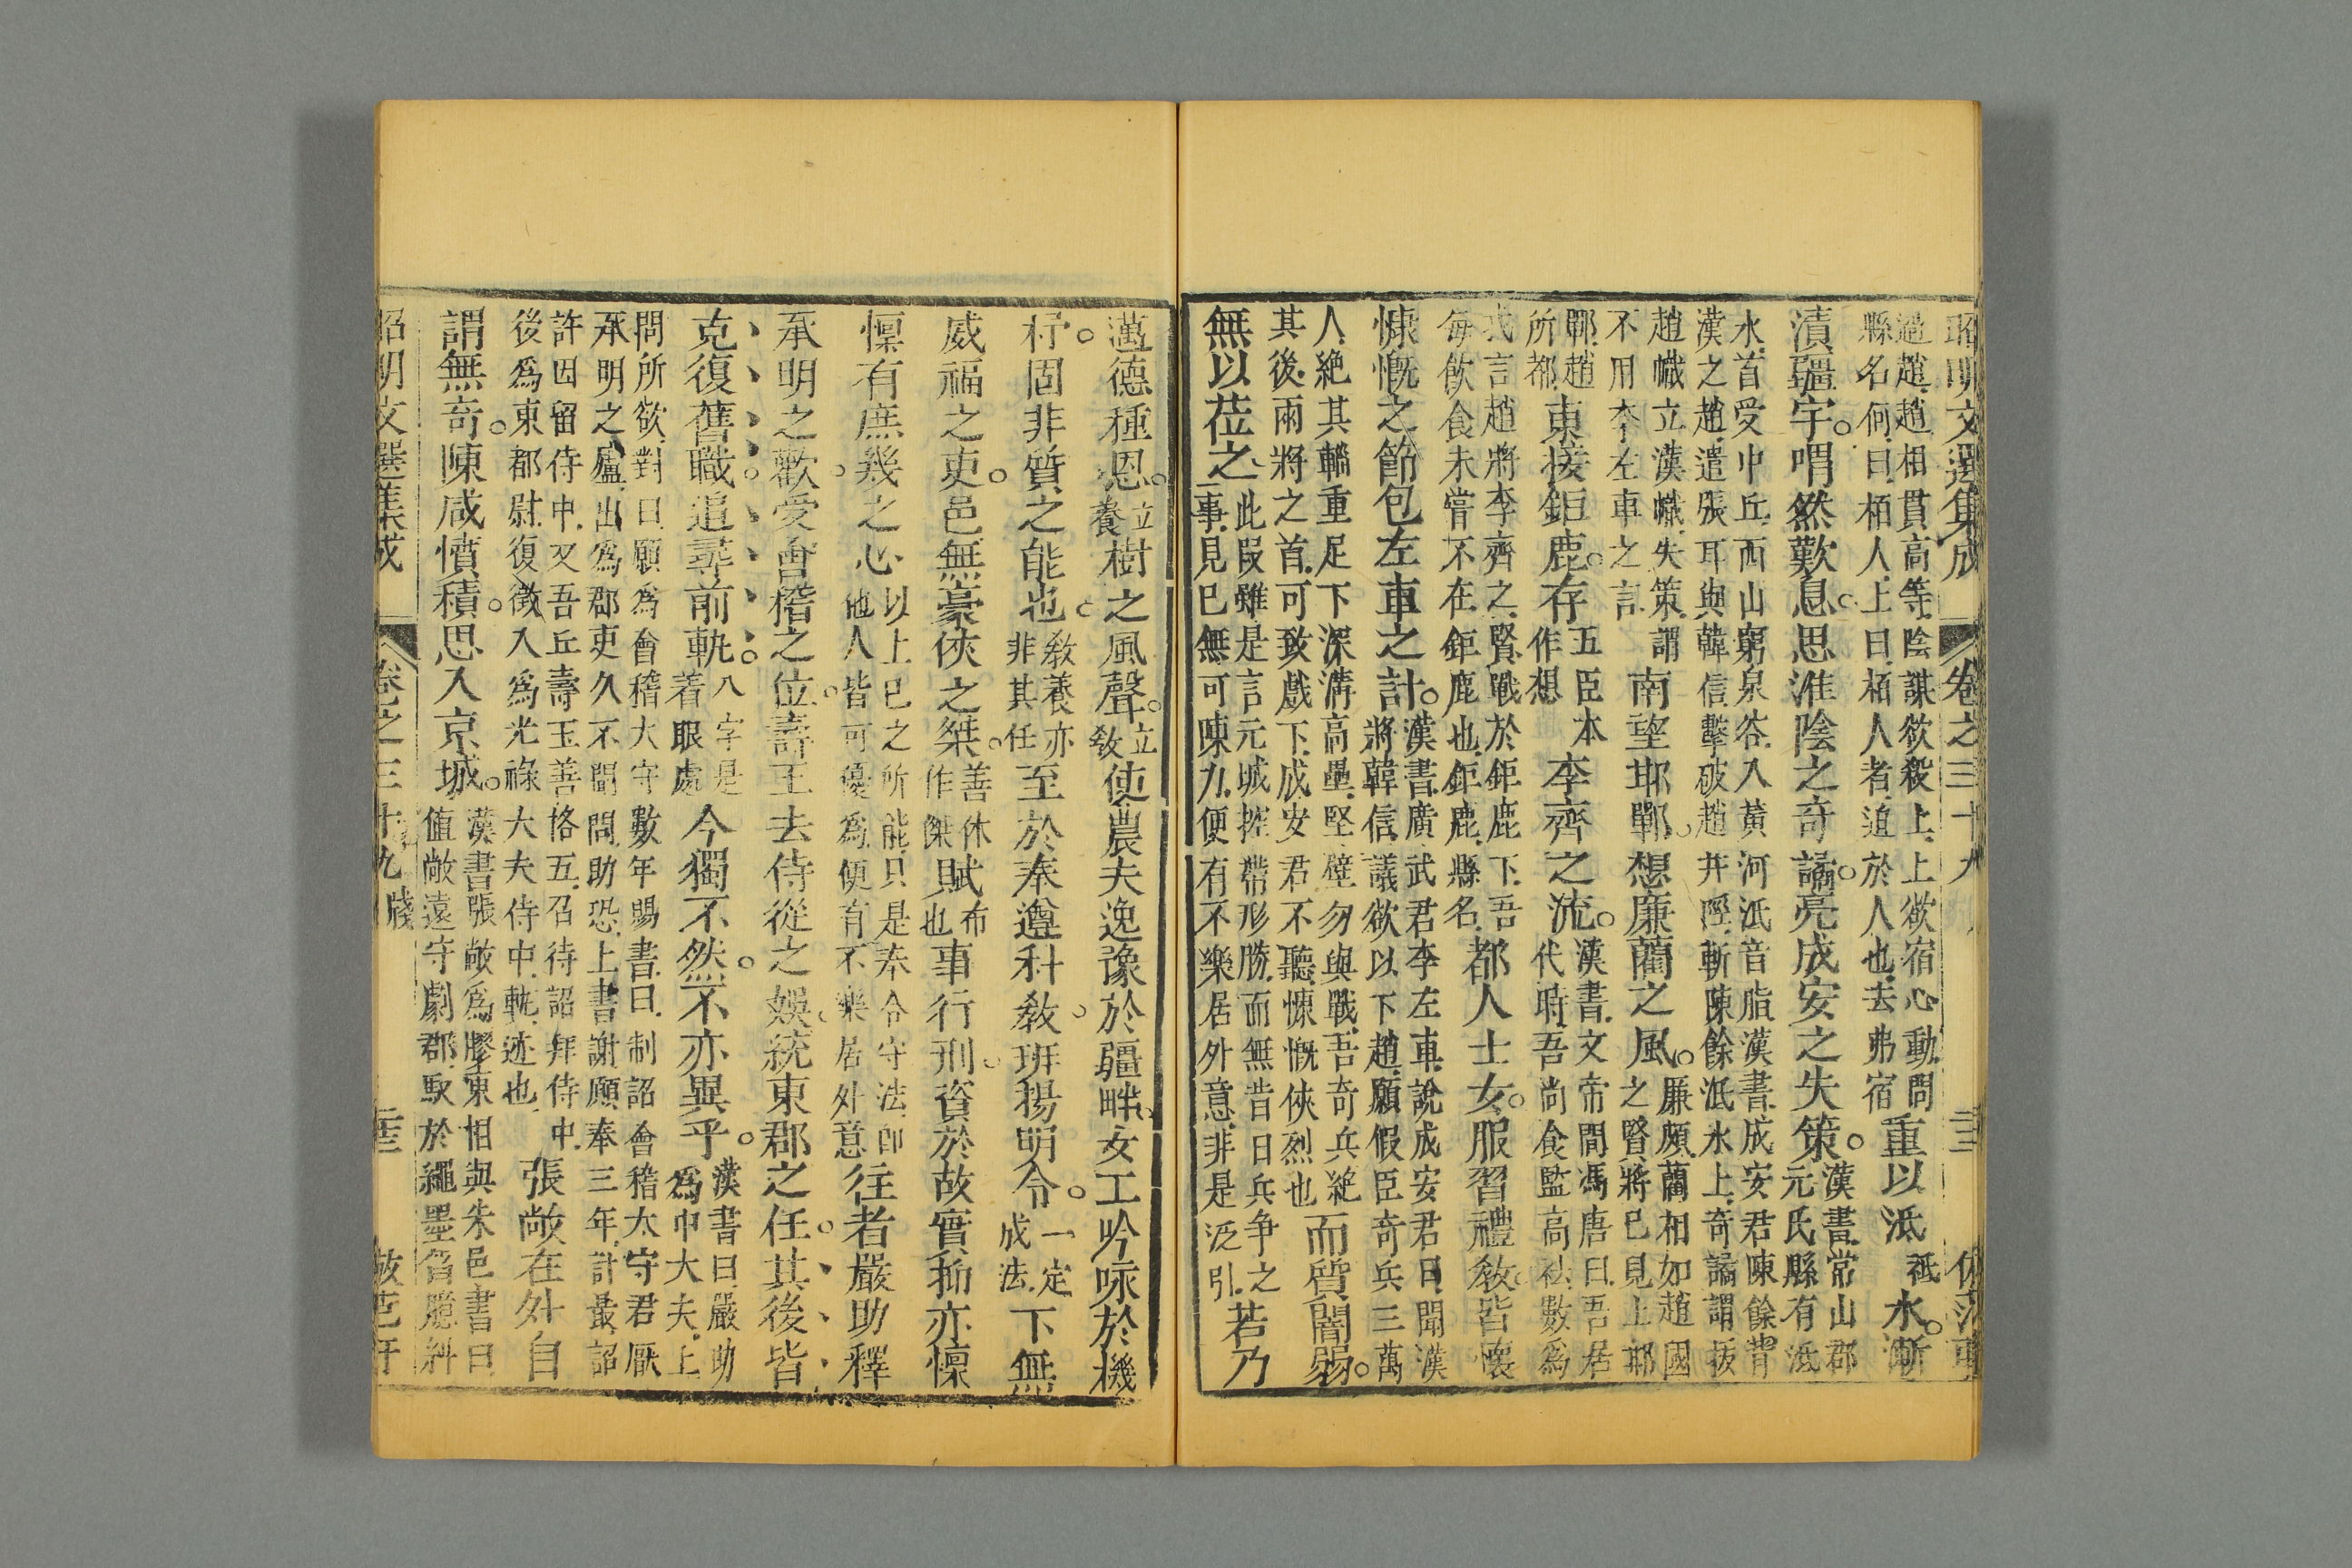 昭明文選集成 卷之三十九
過趙趙相貫高等陰謀欲殺上上欲宿心動問
縣名何曰栢人上曰栢人者迫於人也去弗宿
重以泜
祗
水漸
漬疆宇喟然歎息思淮陰之奇譎亮成安之失策
漢書常山郡
元氏縣有泜
水首受中丘西山窮泉谷入黃河泜音脂漢書成安君陳餘背
漢之趙遣張耳與韓信擊破趙井陘斬陳餘泜水上奇譎謂拔
趙幟立漢幟失策謂
不用李左車之言
南望邯鄲想廉藺之風
廉頗藺相如趙國
之賢將已見上邯
鄲趙
所都
東接鉅鹿存
五臣本
作想
李齊之流
漢書文帝問馮唐曰吾居
代時吾尚食監高袪數爲
我言趙將李齊之賢戰於鉅鹿下吾
每飲食未嘗不在鉅鹿也鉅鹿縣名
都人士女服習禮教皆懷
慷慨之節包左車之計
漢書廣武君李左車說成安君曰聞漢
將韓信議欲以下趙願假臣奇兵三萬
人絶其輜重足下深溝高壘堅壁勿與戰吾奇兵絶
其後兩將之首可致戲下成安君不聽慷慨俠烈也
而質闇弱
無以莅之
此叚雖是言元城控帶形勝而無昔日兵争之
事見已無可陳力便有不樂居外意非是泛引
若乃
邁德種恩
立
養
樹之風聲
立
敎
使農夫逸豫於疆畔女工吟咏於機
杼固非質之能也
敎養亦
非其任
至於奉遵科敎班揚明令
一定
成法
下無
威福之吏邑無豪俠之桀
善休
作傑
賦
布
也
事行刑資於故實抑亦懍
懍有庶幾之心
以上已之所能只是奉令守法卽
他人皆可優爲便有不樂居外意
往者嚴助釋
承明之歡受會稽之位壽王去侍從之娛統東郡之任其後皆
克復舊職追尋前軌
八字是
着眼處
今獨不然不亦異乎
漢書曰嚴助
爲中大夫上
問所欲對曰願爲會稽大守數年賜書曰制詔會稽太守君厭
承明之廬出爲郡吏久不聞問助恐上書謝願奉三年計最詔
許因留侍中又吾丘壽王善格五召待詔拜侍中
後爲東郡尉復徵入爲光祿大夫侍中軌迹也
張敞在外自
謂無奇陳咸憤積思入京城
漢書張敞爲膠東相與朱邑書曰
値敞遠守劇郡馭於繩墨匈臆糾
昭明文選集成 卷之三十九 牋